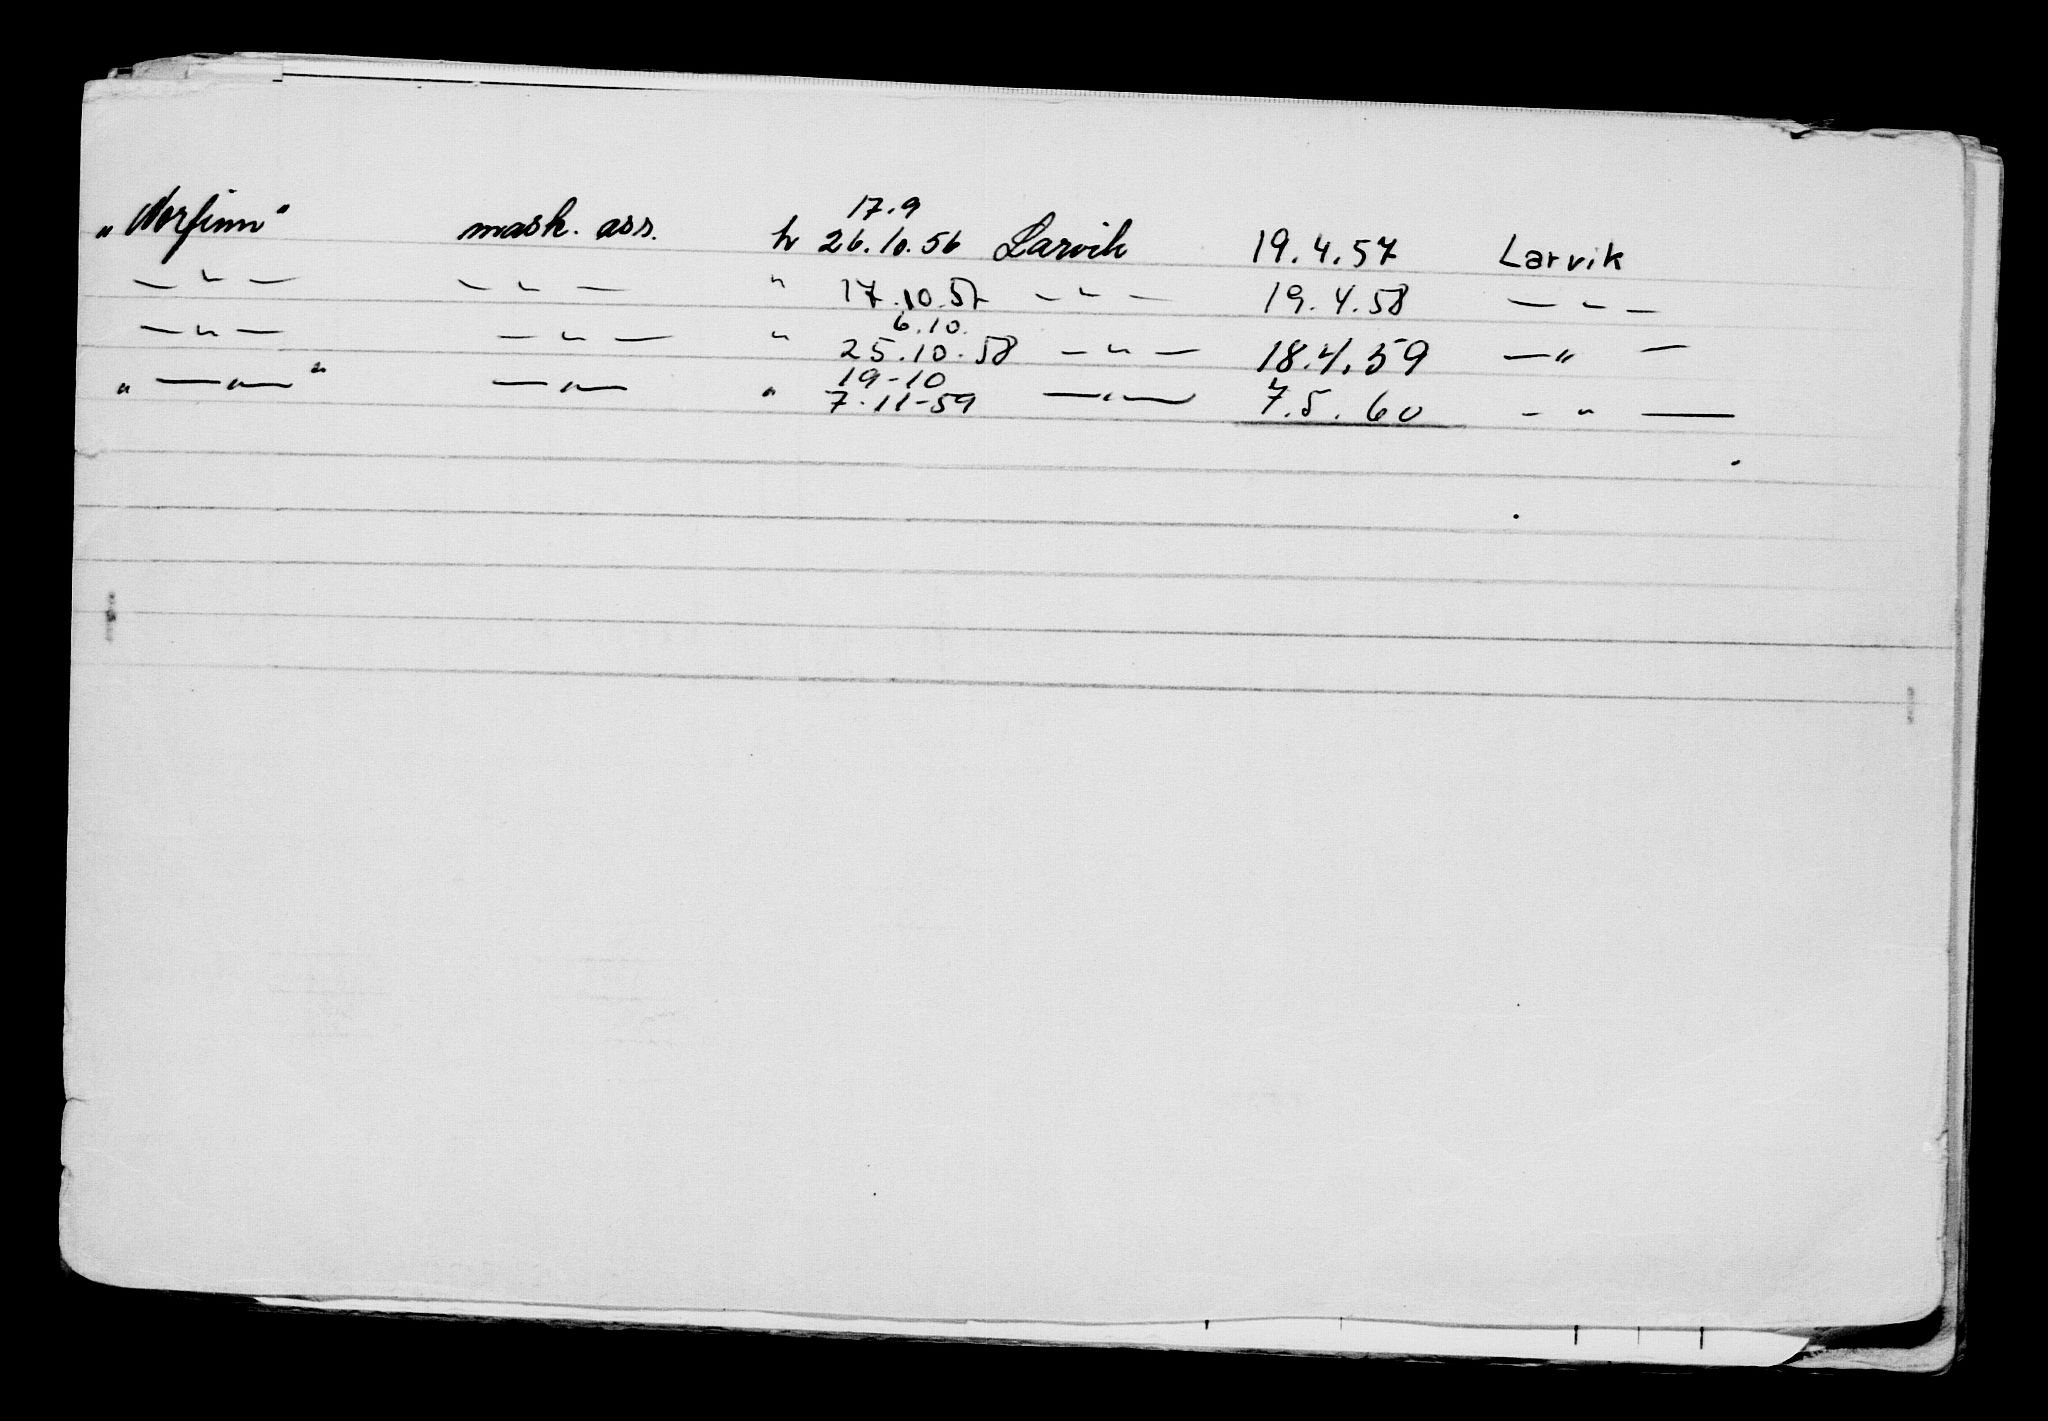 17.9
„Norfinn“ mask. ass. h 26.10.56 Larvik 19.4.57 Larvik
— „ — — „ — " 17.10.57 — „ — 19.4.58 — „ —
6.10.
— „ — — „ — " 25.10.58 — „ — 18.4.59 — „ —
19-10
„ — „ — “ — „ — " 7.11-59 — „ — 7.5.60 — „ —